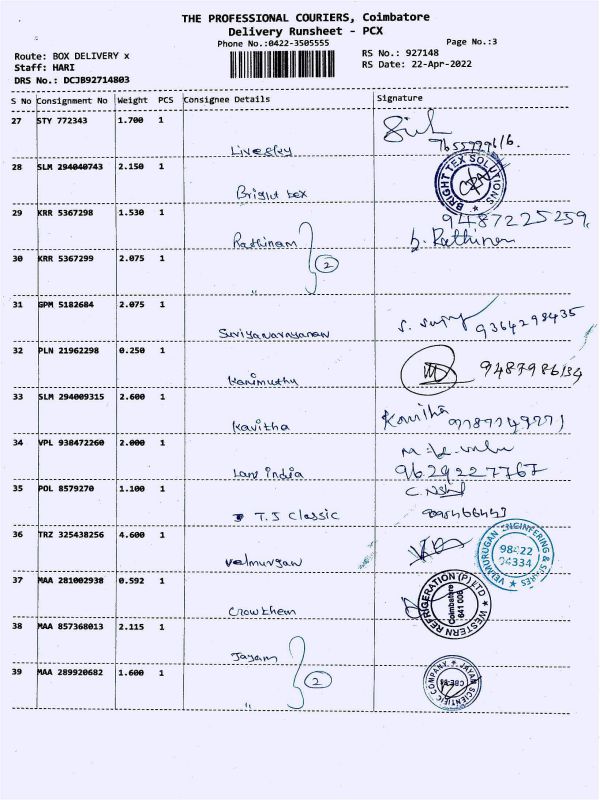 THE PROFESSIONAL COURIERS, Coimbatore
Delivery Runsheet - PCX
Phone No.:0422-3505555
Page No.:3
Route: BOX DELIVERY x
RS No.: 927148
Staff: HARI
RS Date: 22-Apr-2022
DRS No.: DCJB92714803
S No Consignment No Weight PCS Consignee Details Signature
27 STY 772343 1.700 1
28 SLM 294040743 2.150 1
BRIGHT TEX SOLUTIONS
Bright tex
29 KRR 5367298 1.530 1
9487225259
Rathinam
30 KRR 5367299 2.075 1
2
"
31 GPM 5182684 2.075 1
9364298435
Suriyanarayanan
32 PLN 21962298 0.250 1
Kanimuthu
33 SLM 294009315 2.600 1
Kavitha
Kavitha
34 VPL 938472260 2.000 1
9629227767
India
35 POL 8579270 1.100 1
T.J Classic
36 TRZ 325438256 4.600 1
VELMURUGAN ENGINEERING & SALES
94334
Velmurgan
37 MAA 281002938 0.592 1
WESTERN REFRIGERATION (P) LTD
Coimbatore
Crowthem
38 MAA 857368013 2.115 1
Jayam
39 MAA 289920682 1.600 1
2
JAYAM SCIENTIFIC COMPANY
"